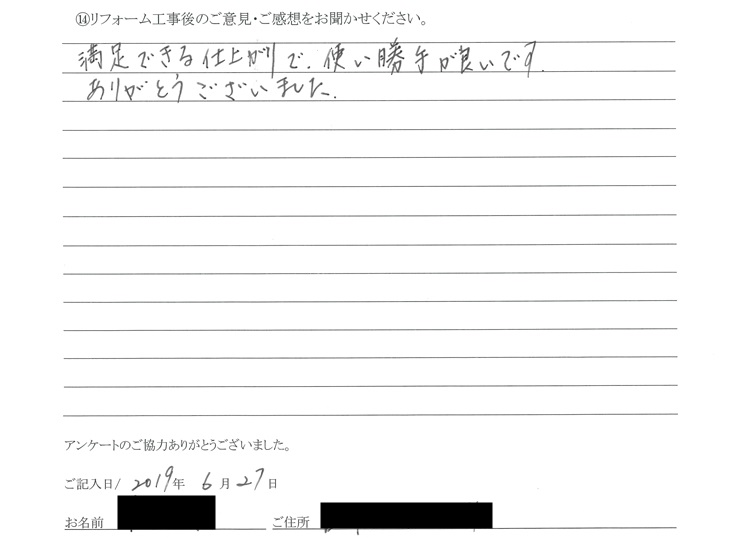 ⑭リフォーム工事後のご意見・ご感想をお聞かせください。
満足できる仕上がりで、使い勝手が良いです.
ありがとうございました.
アンケートのご協力ありがとうございました。
ご記入日/ 2019年 6月27日
お名前 ご住所